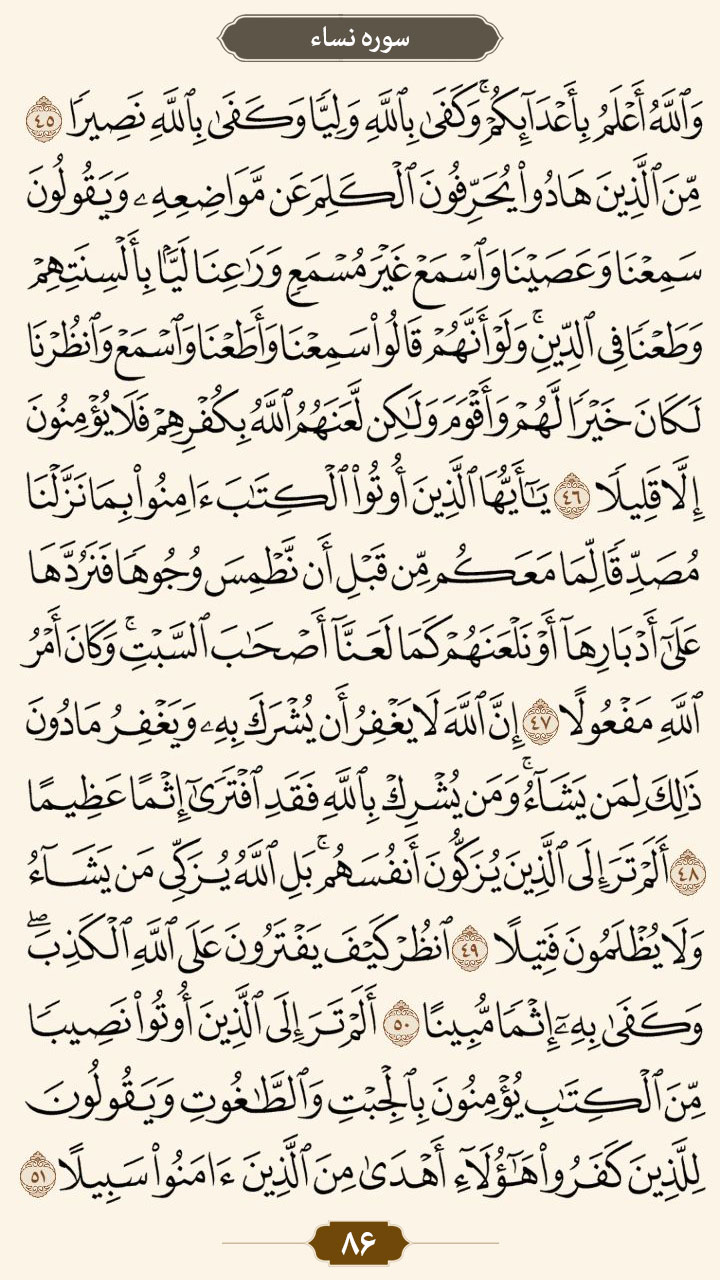 سوره نساء
وَٱللَّهُ أَعْلَمُ بِأَعْدَآئِكُمْۚ وَكَفَىٰ بِٱللَّهِ وَلِيّٗا وَكَفَىٰ بِٱللَّهِ نَصِيرٗا ٤٥
مِّنَ ٱلَّذِينَ هَادُواْ يُحَرِّفُونَ ٱلۡكَلِمَ عَن مَّوَاضِعِهِۦ وَيَقُولُونَ
سَمِعۡنَا وَعَصَيۡنَا وَٱسۡمَعۡ غَيۡرَ مُسۡمَعٖ وَرَٰعِنَا لَيَّۢا بِأَلۡسِنَتِهِمۡ
وَطَعۡنٗا فِي ٱلدِّينِۚ وَلَوۡ أَنَّهُمۡ قَالُواْ سَمِعۡنَا وَأَطَعۡنَا وَٱسۡمَعۡ وَٱنظُرۡنَا
لَكَانَ خَيۡرٗا لَّهُمۡ وَأَقۡوَمَ وَلَٰكِن لَّعَنَهُمُ ٱللَّهُ بِكُفۡرِهِمۡ فَلَا يُؤۡمِنُونَ
إِلَّا قَلِيلٗا ٤٦ يَٰٓأَيُّهَا ٱلَّذِينَ أُوتُواْ ٱلۡكِتَٰبَ ءَامِنُواْ بِمَا نَزَّلۡنَا
مُصَدِّقٗا لِّمَا مَعَكُم مِّن قَبۡلِ أَن نَّطۡمِسَ وُجُوهٗا فَنَرُدَّهَا
عَلَىٰٓ أَدۡبَارِهَآ أَوۡ نَلۡعَنَهُمۡ كَمَا لَعَنَّآ أَصۡحَٰبَ ٱلسَّبۡتِۚ وَكَانَ أَمۡرُ
ٱللَّهِ مَفۡعُولًا ٤٧ إِنَّ ٱللَّهَ لَا يَغۡفِرُ أَن يُشۡرَكَ بِهِۦ وَيَغۡفِرُ مَا دُونَ
ذَٰلِكَ لِمَن يَشَآءُۚ وَمَن يُشۡرِكۡ بِٱللَّهِ فَقَدِ ٱفۡتَرَىٰٓ إِثۡمًا عَظِيمًا
٤٨ أَلَمۡ تَرَ إِلَى ٱلَّذِينَ يُزَكُّونَ أَنفُسَهُمۚ بَلِ ٱللَّهُ يُزَكِّي مَن يَشَآءُ
وَلَا يُظۡلَمُونَ فَتِيلًا ٤٩ ٱنظُرۡ كَيۡفَ يَفۡتَرُونَ عَلَى ٱللَّهِ ٱلۡكَذِبَۖ
وَكَفَىٰ بِهِۦٓ إِثۡمٗا مُّبِينًا ٥٠ أَلَمۡ تَرَ إِلَى ٱلَّذِينَ أُوتُواْ نَصِيبٗا
مِّنَ ٱلۡكِتَٰبِ يُؤۡمِنُونَ بِٱلۡجِبۡتِ وَٱلطَّٰغُوتِ وَيَقُولُونَ
لِلَّذِينَ كَفَرُواْ هَٰٓؤُلَآءِ أَهۡدَىٰ مِنَ ٱلَّذِينَ ءَامَنُواْ سَبِيلًا ٥١
۸۶